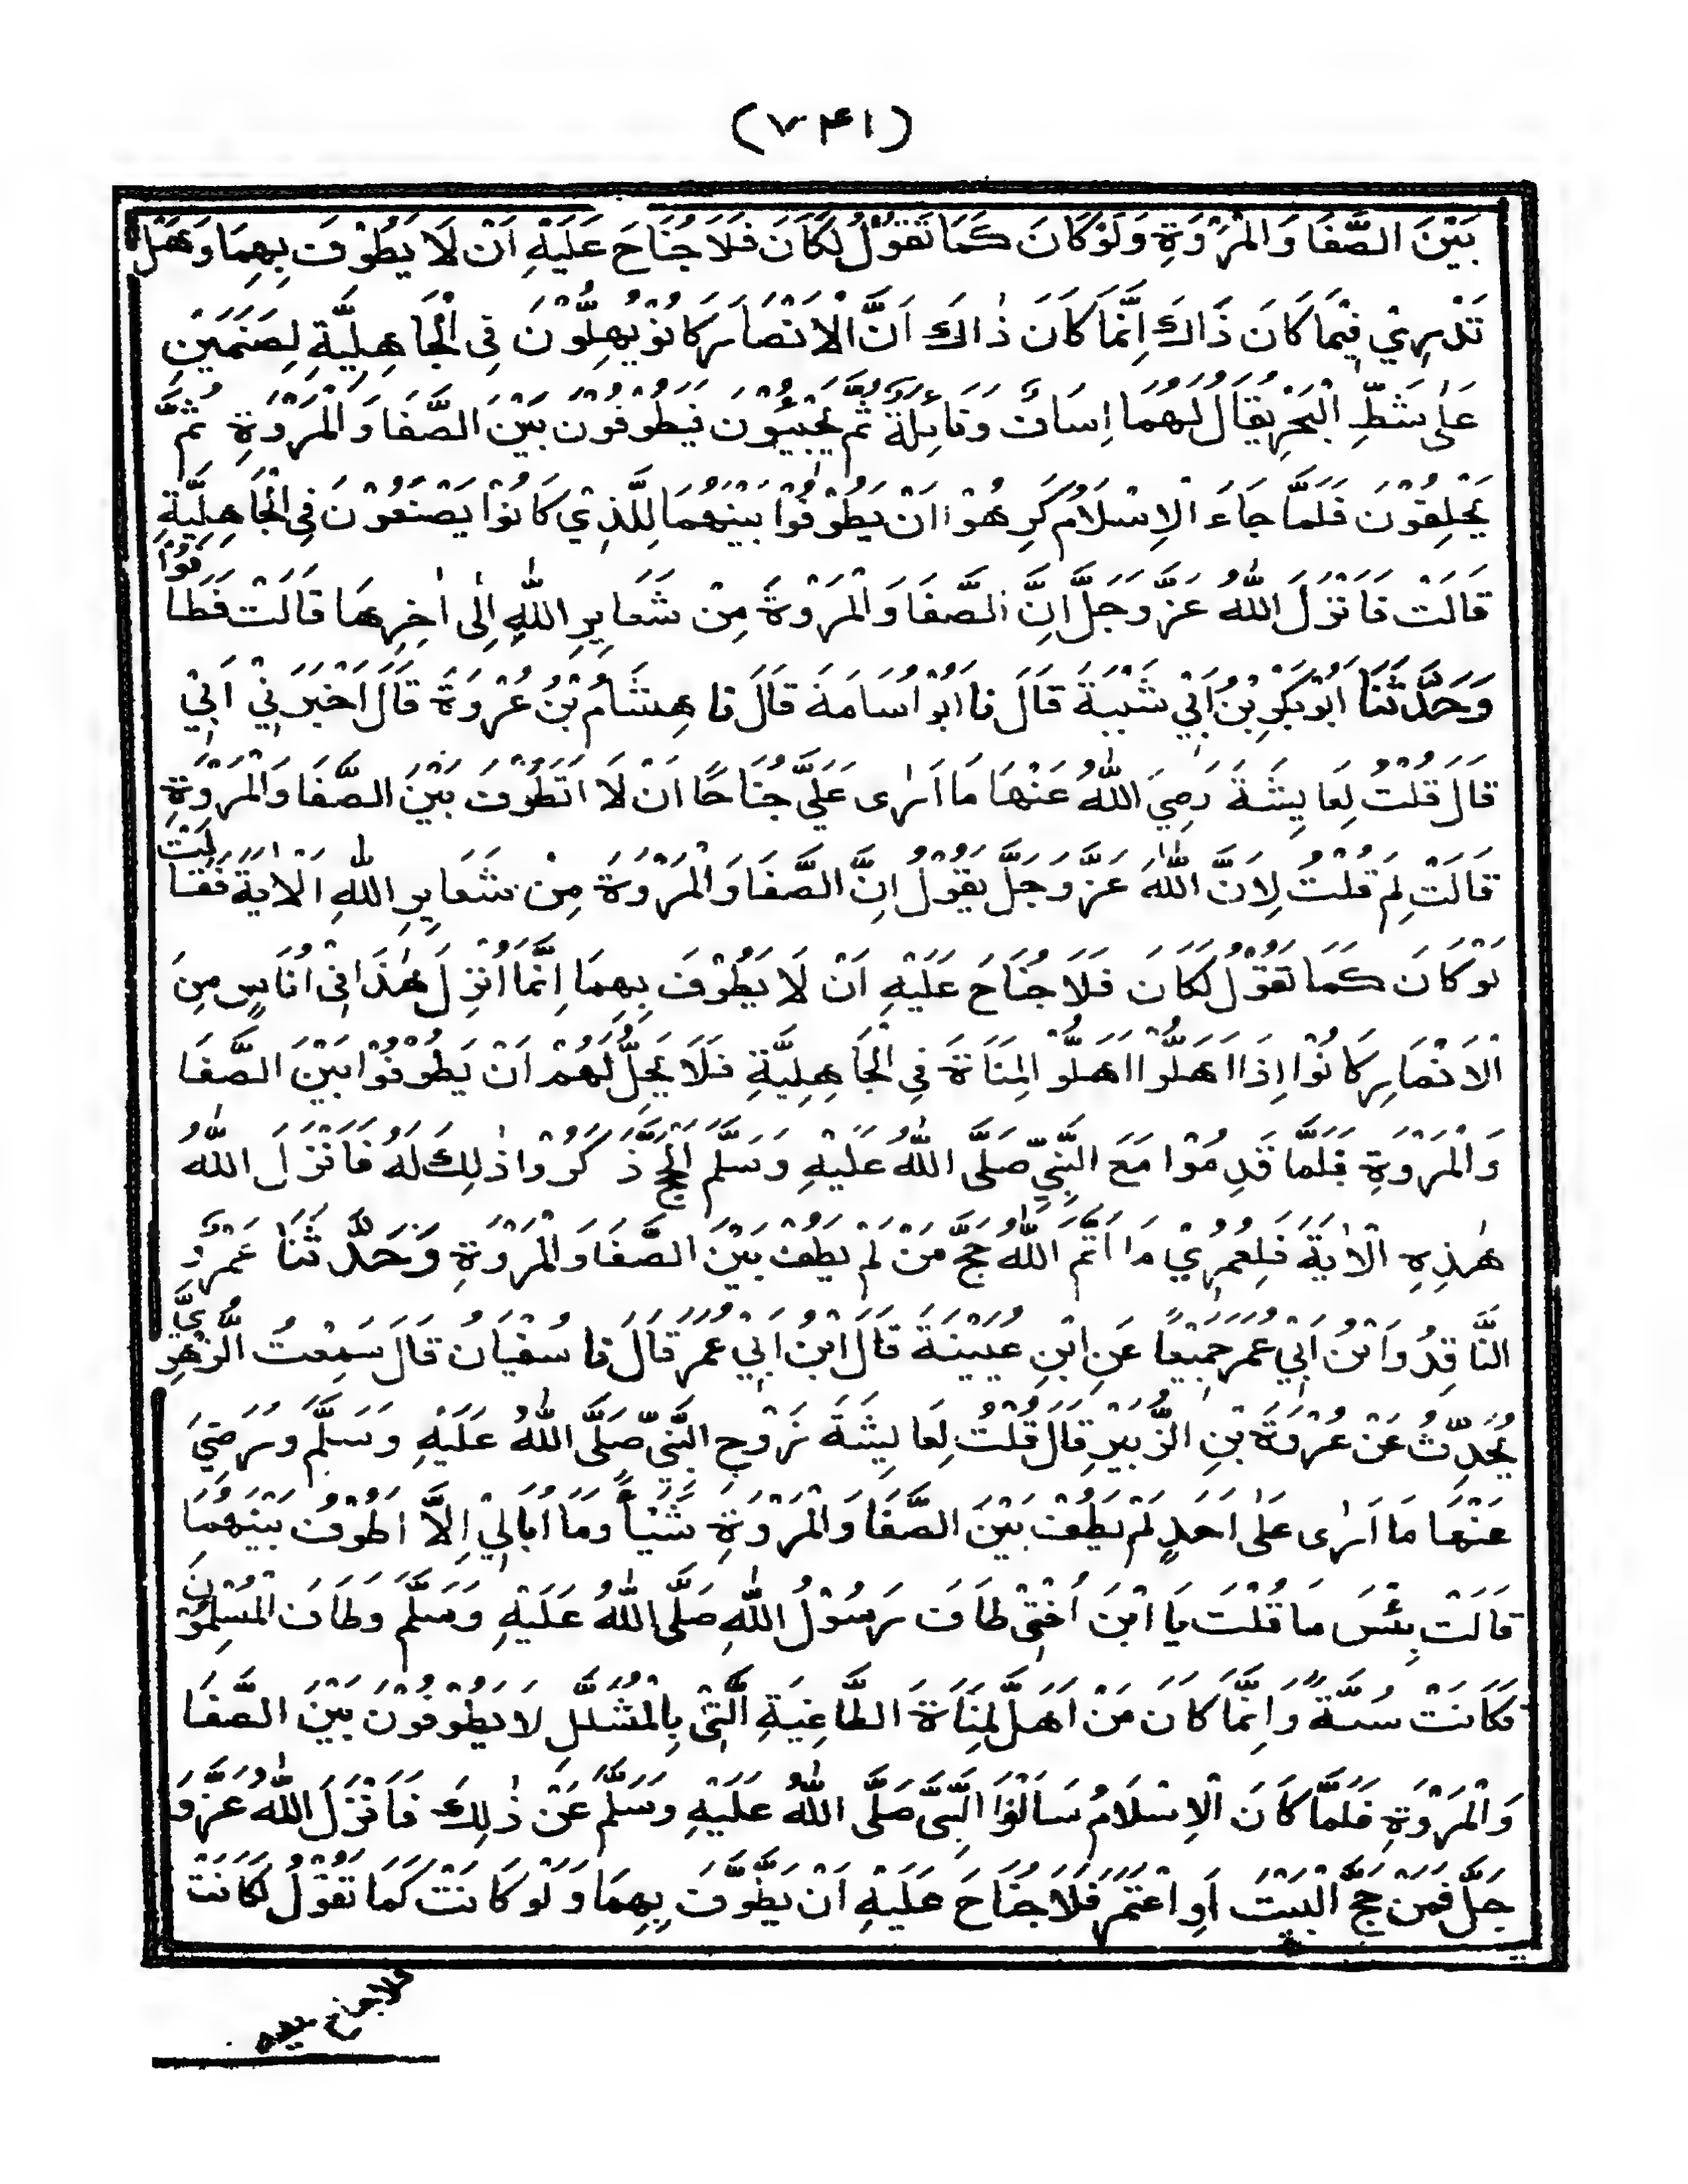 (۷۴۱)
بَيْنَ الصَّفَا وَالْمَرْوَةِ وَلَوْ كَانَ كَمَا تَقُوْلُ لَكَانَ فَلَا جُنَاحَ عَلَيْهِ اَنْ لَا يَطُوْفَ بِهِمَا وَهَلْ
تَدْرِيْ فِيْمَا كَانَ ذَاكَ اِنَّمَا كَانَ ذٰالكَ اَنَّ الْاَنْصَارَ كَانُوْ يُهِلُّوْنَ فِى الْجَاهِلِيَّةِ لِصَنَمَيْنِ
عَلٰى شَطِّ الْبَحْرِ يُقَالُ لَهُمَا اِسَافٌ وَنَائِلَةُ ثُمَّ يَجِيْئُوْنَ فَيَطُوْفُوْنَ بَيْنَ الصَّفَا وَالْمَرْوَةِ ثُمَّ
يَحْلِقُوْنَ فَلَمَّا جَاءَ الْاِسْلَامُ كَرِهُوْا اَنْ يَطُوْفُوْا بَيْنَهُمَا لِلَّذِيْ كَانُوْا يَصْنَعُوْنَ فِى الْجَاهِلِيَّةِ
قَالَتْ فَاَنْزَلَ اللّٰهُ عَزَّ وَجَلَّ اِنَّ الصَّفَا وَالْمَرْوَةَ مِنْ شَعَايِرِ اللّٰهِ اِلٰى اٰخِرِهَا قَالَتْ فَطَافُوْا
وَحَدَّثَنَا اَبُوْبَكْرِ بْنُ اَبِيْ شَيْبَةَ قَالَ نَا اَبُوْ اُسَامَةَ قَالَ نَا هِشَامُ بْنُ عُرْوَةَ قَالَ اَخْبَرَنِيْ اَبِيْ
قَالَ قُلْتُ لِعَايِشَةَ رَضِيَ اللّٰهُ عَنْهَا مَا اَرٰى عَلَيَّ جُنَاحًا اَنْ لَا اَتَطَوَّفَ بَيْنَ الصَّفَا وَالْمَرْوَةِ
قَالَتْ لِمَ قُلْتُ لِاَنَّ اللّٰهَ عَزَّ وَجَلَّ يَقُوْلُ اِنَّ الصَّفَا وَالْمَرْوَةَ مِنْ شَعَايِرِ اللّٰهِ الْاٰيَةَ فَقَالَتْ
لَوْ كَانَ كَمَا تَقُوْلُ لَكَانَ فَلَا جُنَاحَ عَلَيْهِ اَنْ لَا يَطُوْفَ بِهِمَا اِنَّمَا اُنْزِلَ هٰذَا فِىْ اُنَاسٍ مِنَ
الْاَنْصَارِ كَانُوْا اِذَا اَهَلُّوْا اَهَلُّوْ الِمَنَاةَ فِى الْجَاهِلِيَّةِ فَلَا يَحِلُّ لَهُمْ اَنْ يَطُوْفُوْا بَيْنَ الصَّفَا
وَالْمَرْوَةِ فَلَمَّا قَدِمُوْا مَعَ النَّبِيِّ صَلَّى اللّٰهُ عَلَيْهِ وَسَلَّمَ الْحَجَّ ذَكَرُوْا ذٰلِكَ لَهُ فَاَنْزَلَ اللّٰهُ
هٰذِهِ الْاٰيَةَ فَلَعَمْرِيْ مَا اَتَمَّ اللّٰهُ حَجَّ مَنْ لَمْ يَطُفْ بَيْنَ الصَّفَا وَالْمَرْوَةِ وَحَدَّثَنَا عَمْرُو
النَّاقِدُ وَابْنُ اَبِيْ عُمَرَ جَمِيْعًا عَنِ ابْنِ عُيَيْنَةَ قَالَ ابْنُ اَبِيْ عُمَرَ قَالَ نَا سُفْيَانُ قَالَ سَمِعْتُ الزُّهْرِيَّ
يُحَدِّثُ عَنْ عُرْوَةَ بْنِ الزُّبَيْرِ قَالَ قُلْتُ لِعَايِشَةَ زَوْجِ النَّبِيِّ صَلَّى اللّٰهُ عَلَيْهِ وَسَلَّمَ وَرَضِيَ
عَنْهَا مَا اَرٰى عَلٰى اَحَدٍ لَمْ يَطُفْ بَيْنَ الصَّفَا وَالْمَرْوَةِ شَيْئاً وَمَا اُبَالِيْ اِلَّا اَطُوْفَ بَيْنَهُمَا
قَالَتْ بِئْسَ مَا قُلْتَ يَا ابْنَ اُخْتِىْ طَافَ رَسُوْلُ اللّٰهِ صَلَّى اللّٰهُ عَلَيْهِ وَسَلَّمَ وَطَافَ الْمُسْلِمُوْنَ
فَكَانَتْ سُنَّةً وَاِنَّمَا كَانَ مَنْ اَهَلَّ لِمَنَاةَ الطَّاغِيَةِ الَّتِىْ بِالْمُشَلَّلِ لَا يَطُوْفُوْنَ بَيْنَ الصَّفَا
وَالْمَرْوَةِ فَلَمَّا كَانَ الْاِسْلَامُ سَاَلْنَا النَّبِىَّ صَلَّى اللّٰهُ عَلَيْهِ وَسَلَّمَ عَنْ ذٰلِكَ فَاَنْزَلَ اللّٰهُ عَزَّ وَ
جَلَّ فَمَنْ حَجَّ الْبَيْتَ اَوِ اعْتَمَرَ فَلَا جُنَاحَ عَلَيْهِ اَنْ يَطَّوَّفَ بِهِمَا وَلَوْ كَانَتْ كَمَا تَقُوْلُ لَكَانَتْ
فلا جناح عليه